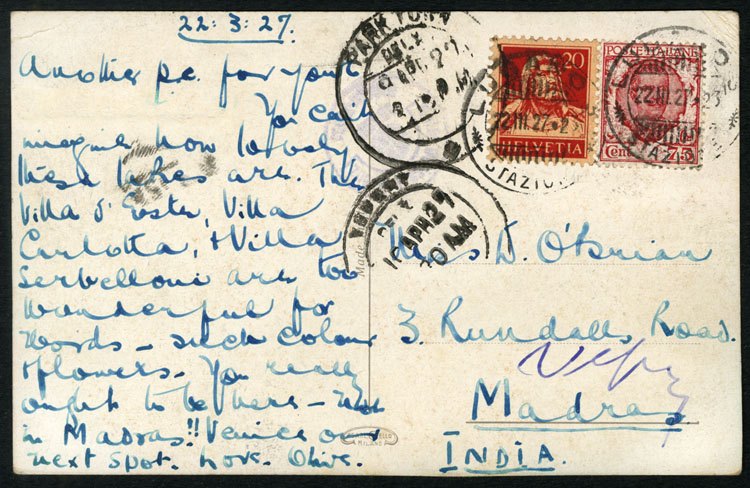 22.3.27.
Another p.c. for you!
You can't
imagine how lovely
these lakes are. The
Villa d'Este, Villa
Carlotta, & Villa
Serbelloni are too
wonderful for
words – such colour
& flowers. You really
ought to be here – not
in Madras!! Venice our
next spot. Love. Olive.
PARK TOWN
DELY
VEPERY
20
HELVETIA
22.III.27
POSTE ITALIANE
22.III.27
Cent 75
STAZIONE
Made
Miss D. O'Brian
3. Rundalls Road.
Vepery
Madras
INDIA.
MILANO